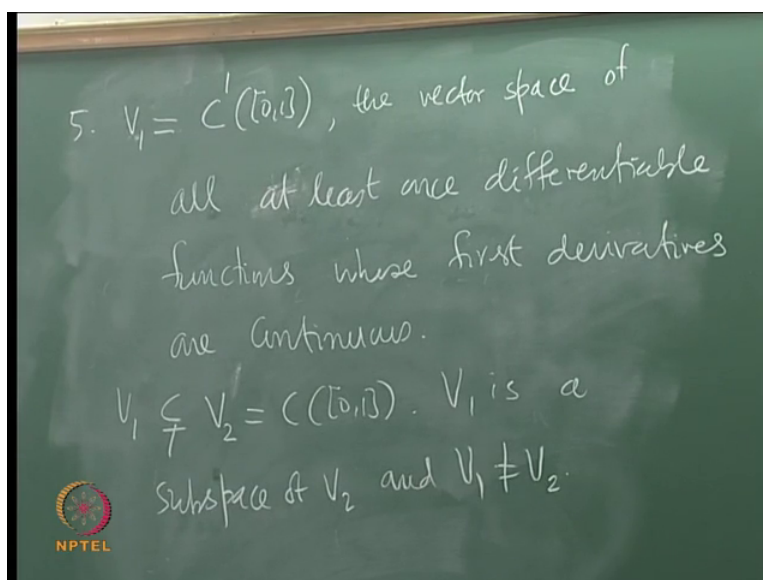 5. V₁ = C¹([0,1]), the vector space of
all at least once differentiable
functions whose first derivatives
are continuous.
V₁ ⊊ V₂ = C([0,1]). V₁ is a
subspace of V₂ and V₁ ≠ V₂.
NPTEL